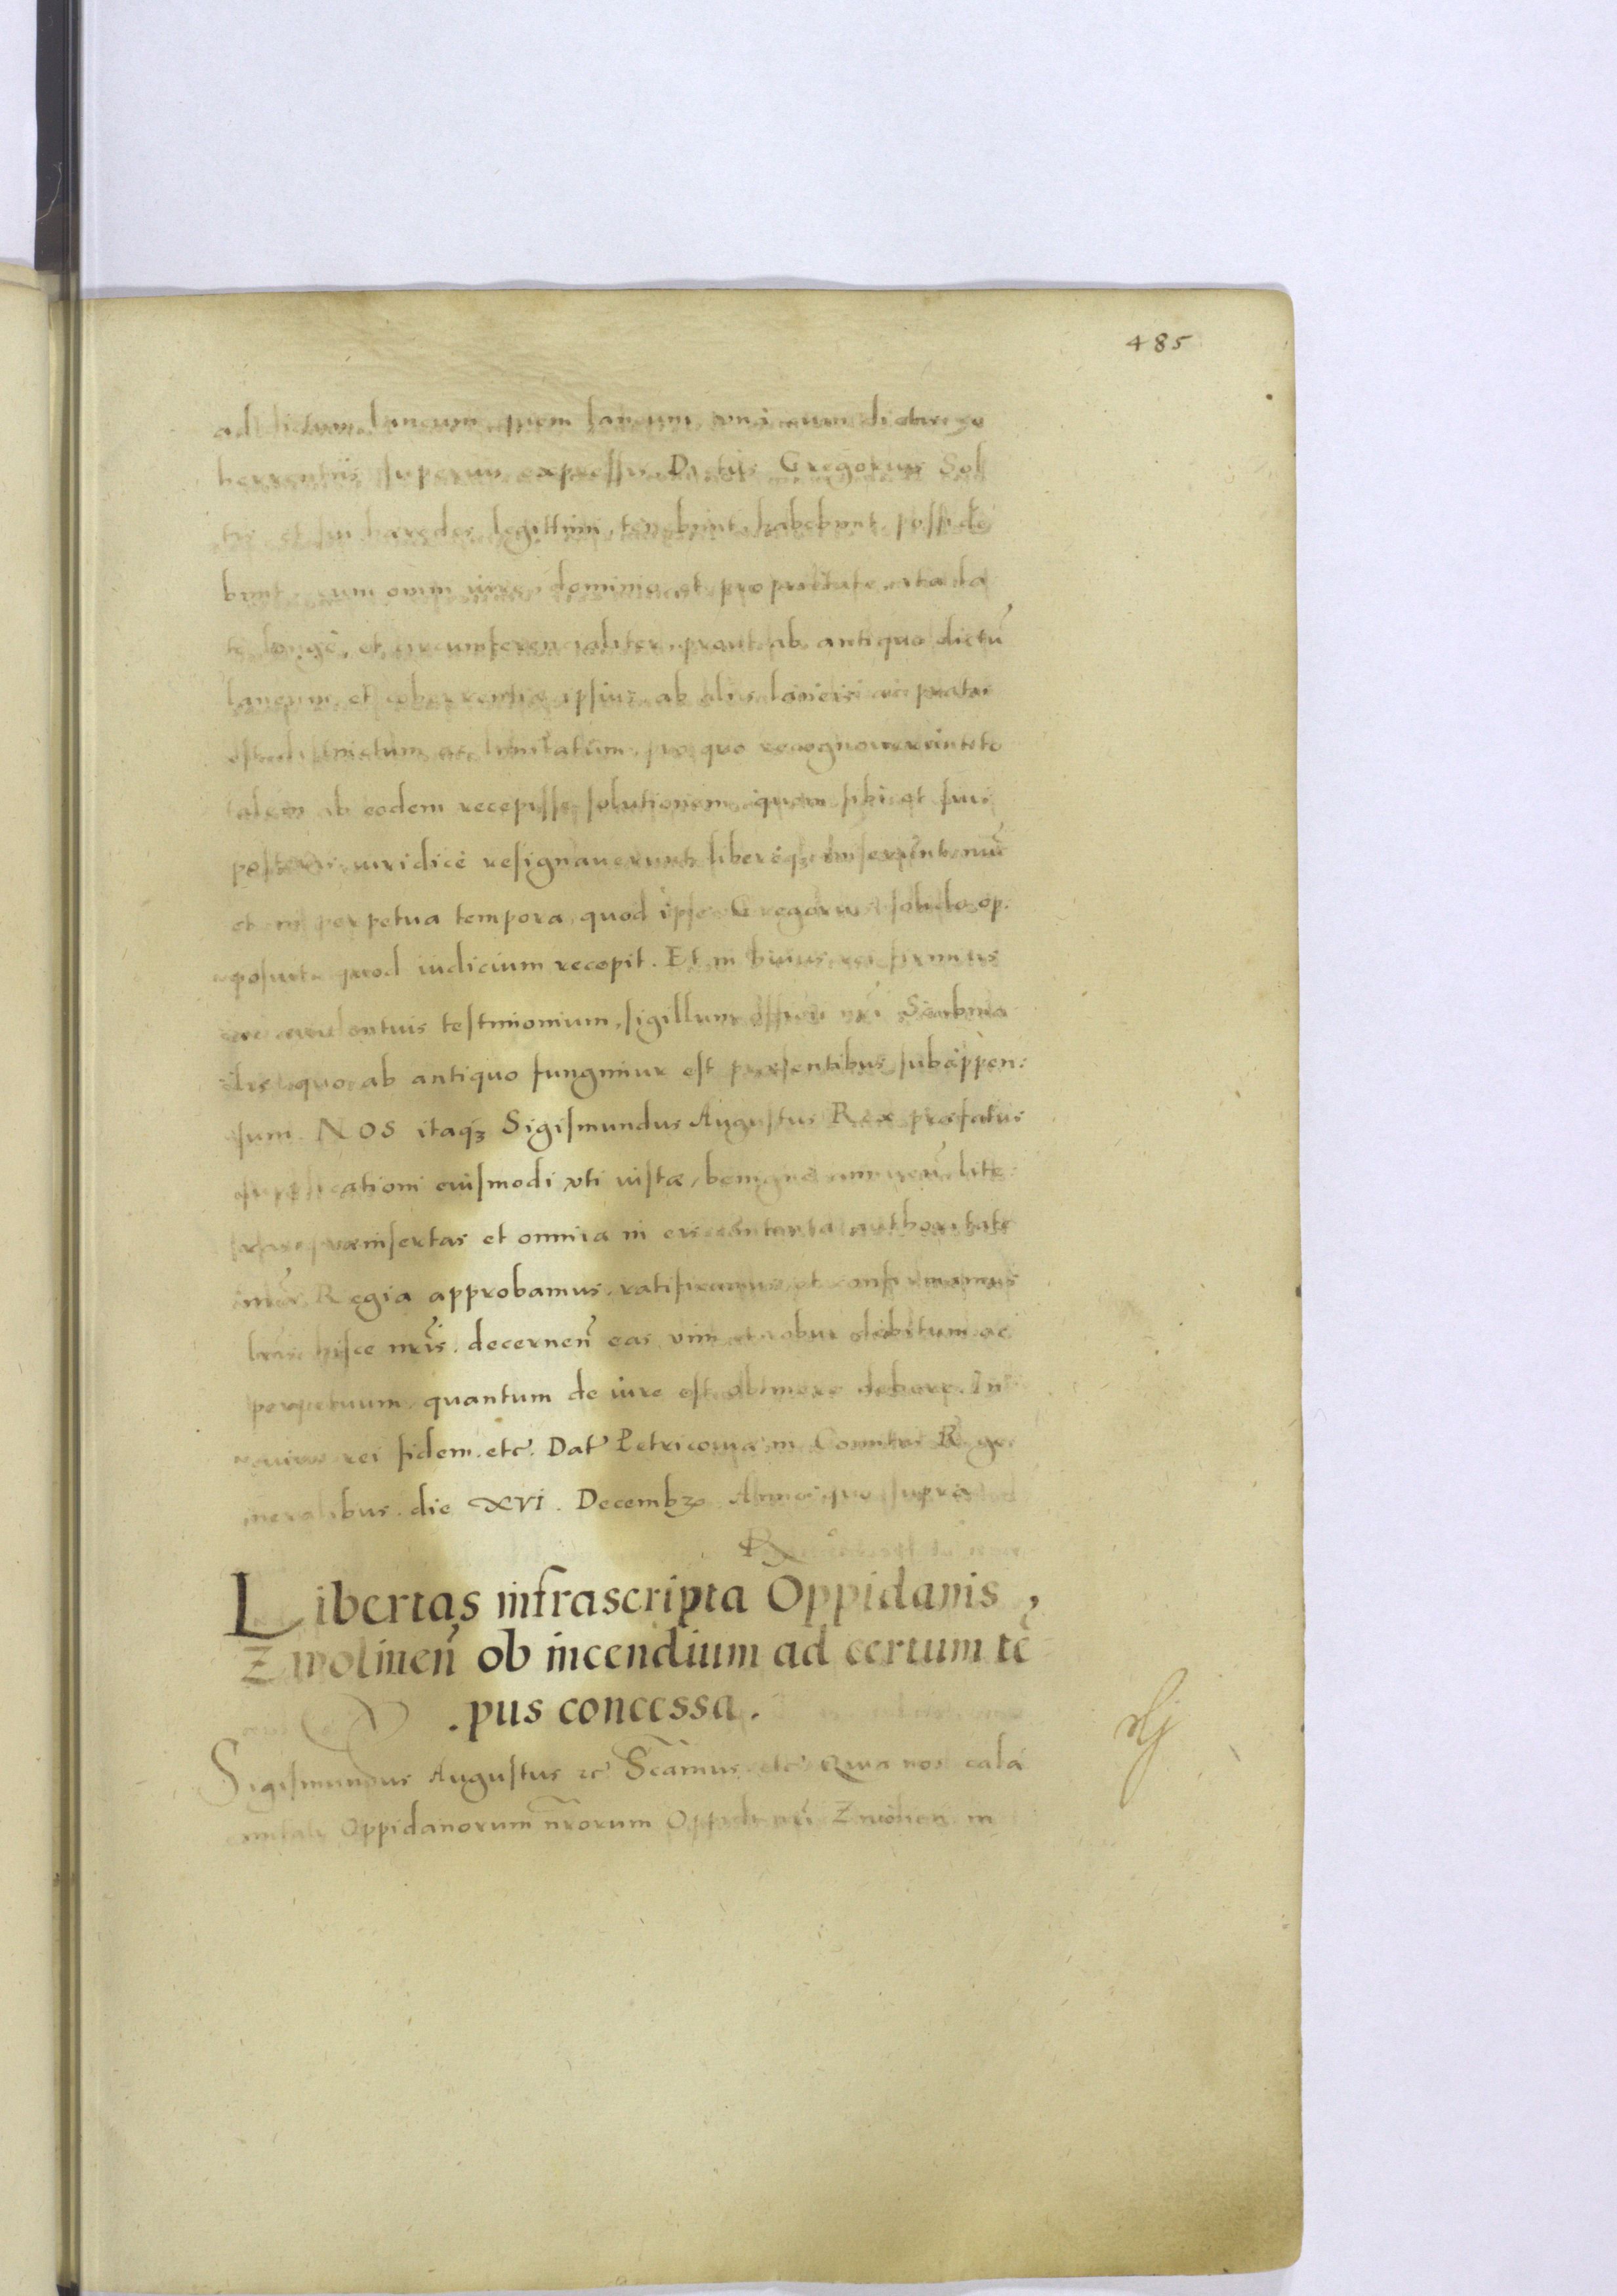 485
ad dictum laneum quem laneum una cum dictis co
herrentiis superius expressis. Dictus Gregorius Sol
tis et sui haredes legittimi, tenebunt habebunt posside
bunt cum omni iure dominio et proprietate ita la
te longe, et circumferencialiter prout ab antiquo dictū
laneum et coherrentia ipsius ab aliis laneis
est distinctum ac limitatum, pro quo recognouerunt to
talem ab eodem recepisse solutionem quem sibi et suis
posteris iuridicè resignauerunt libereqȝ nūc
et in perpetua tempora, quod ipse Gregorius solido op.
posuit quod iudicium recepit. Et in huius rei firmius
testimonium, sigillum officii nrī Scabina
lis quo ab antiquo fungimur est praesentibus subappen:
sum. NOS itaqȝ Sigismundus Augustus Rex praefatus
supplicationi euismodi vti iustae, benigne litte
praeinsertas et omnia in eis contenta authoritate
Regia approbamus ratificamus et confirmamus
hisce nrīs. decernen̄ eas vim et robur debitum ac
perpetuum quantum de iure est obtinere debere. In
cuius rei fidem etc. Dat Petricouiae in Comitiis Regni ge
neralibus. die XVI. Decembȝ Anno quo supra
Libertas infrascripta Oppidanis
Zwolinen̄ ob incendium ad certum tē
.pus concessa.
Sigismundus Augustus etc Scāmus etc Quia nos cala
mitate Oppidanorum nrorum Oppidi nrī Zwolien in